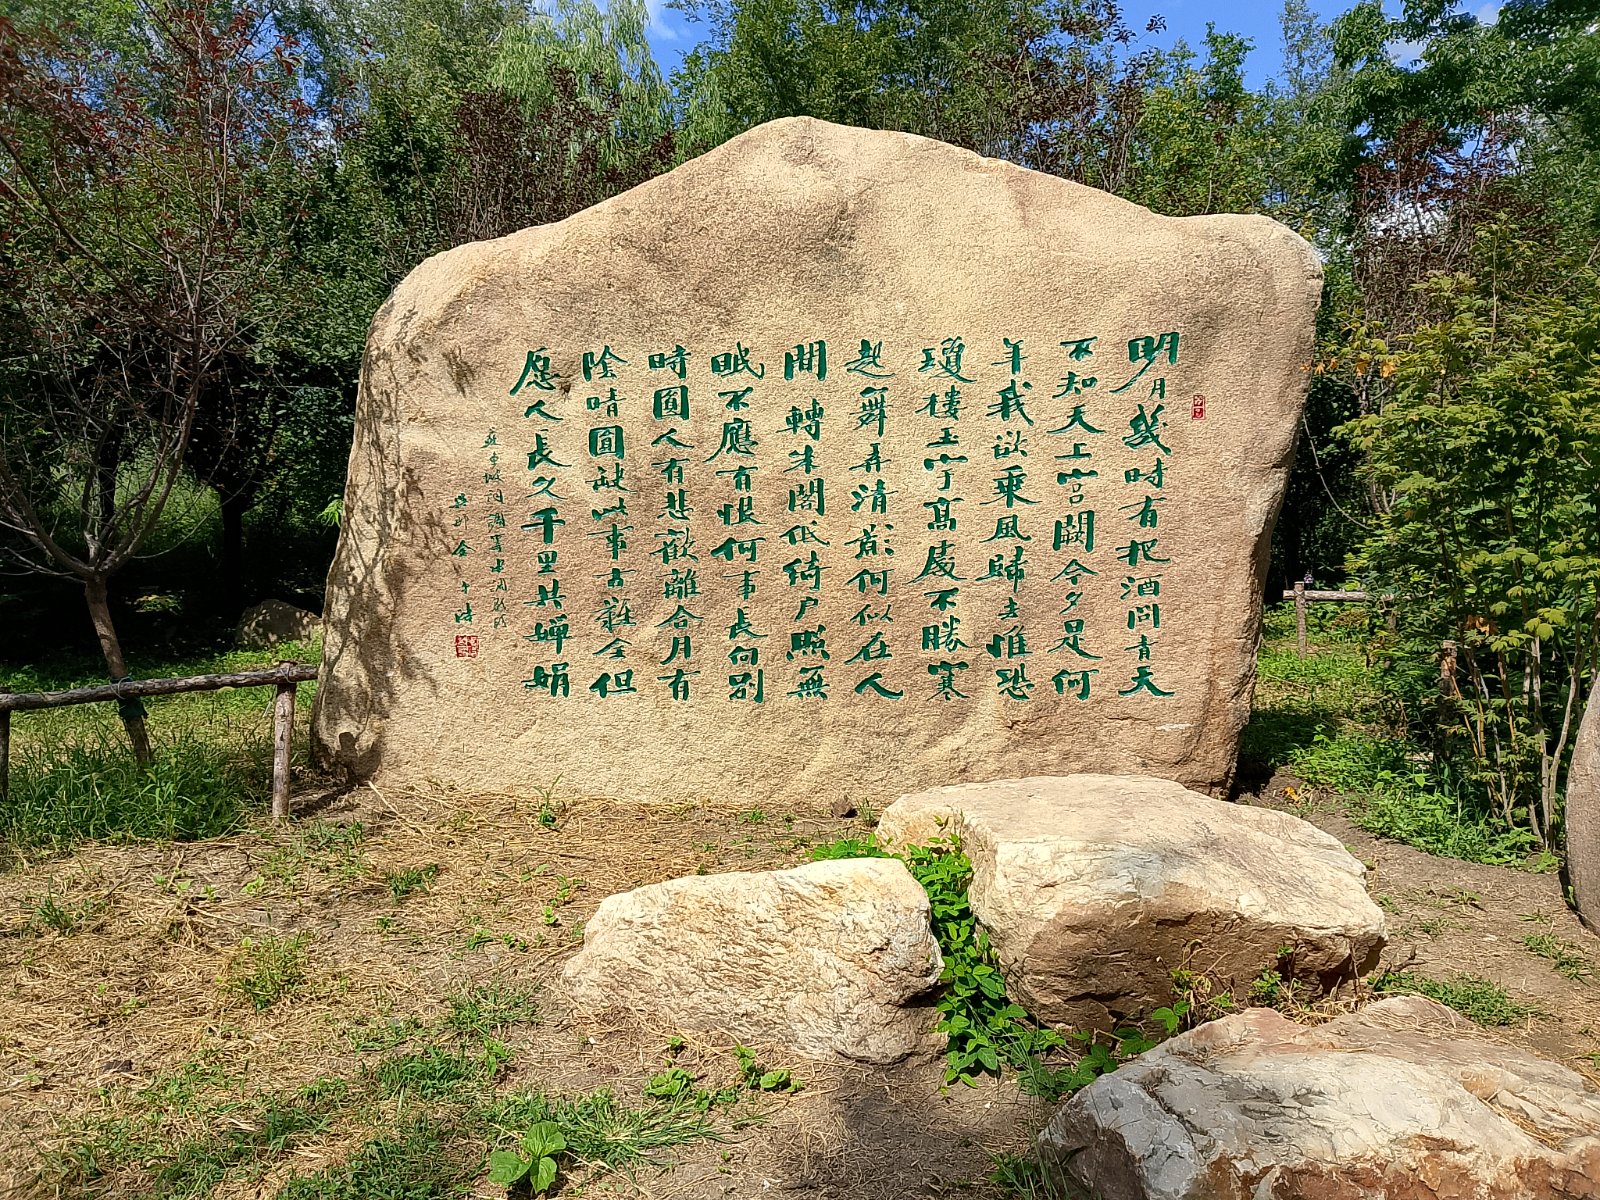 明月幾時有把酒問青天
不知天上宮闕今夕是何
年我欲乘風歸去惟恐
瓊樓玉宇高處不勝寒
起舞弄清影何似在人
間轉朱閣低綺户照無
眠不應有恨何事長向别
時圓人有悲歡離合月有
陰晴圓缺此事古難全但
愿人長久千里共嬋娟
蘇東坡詞調寄水調歌頭